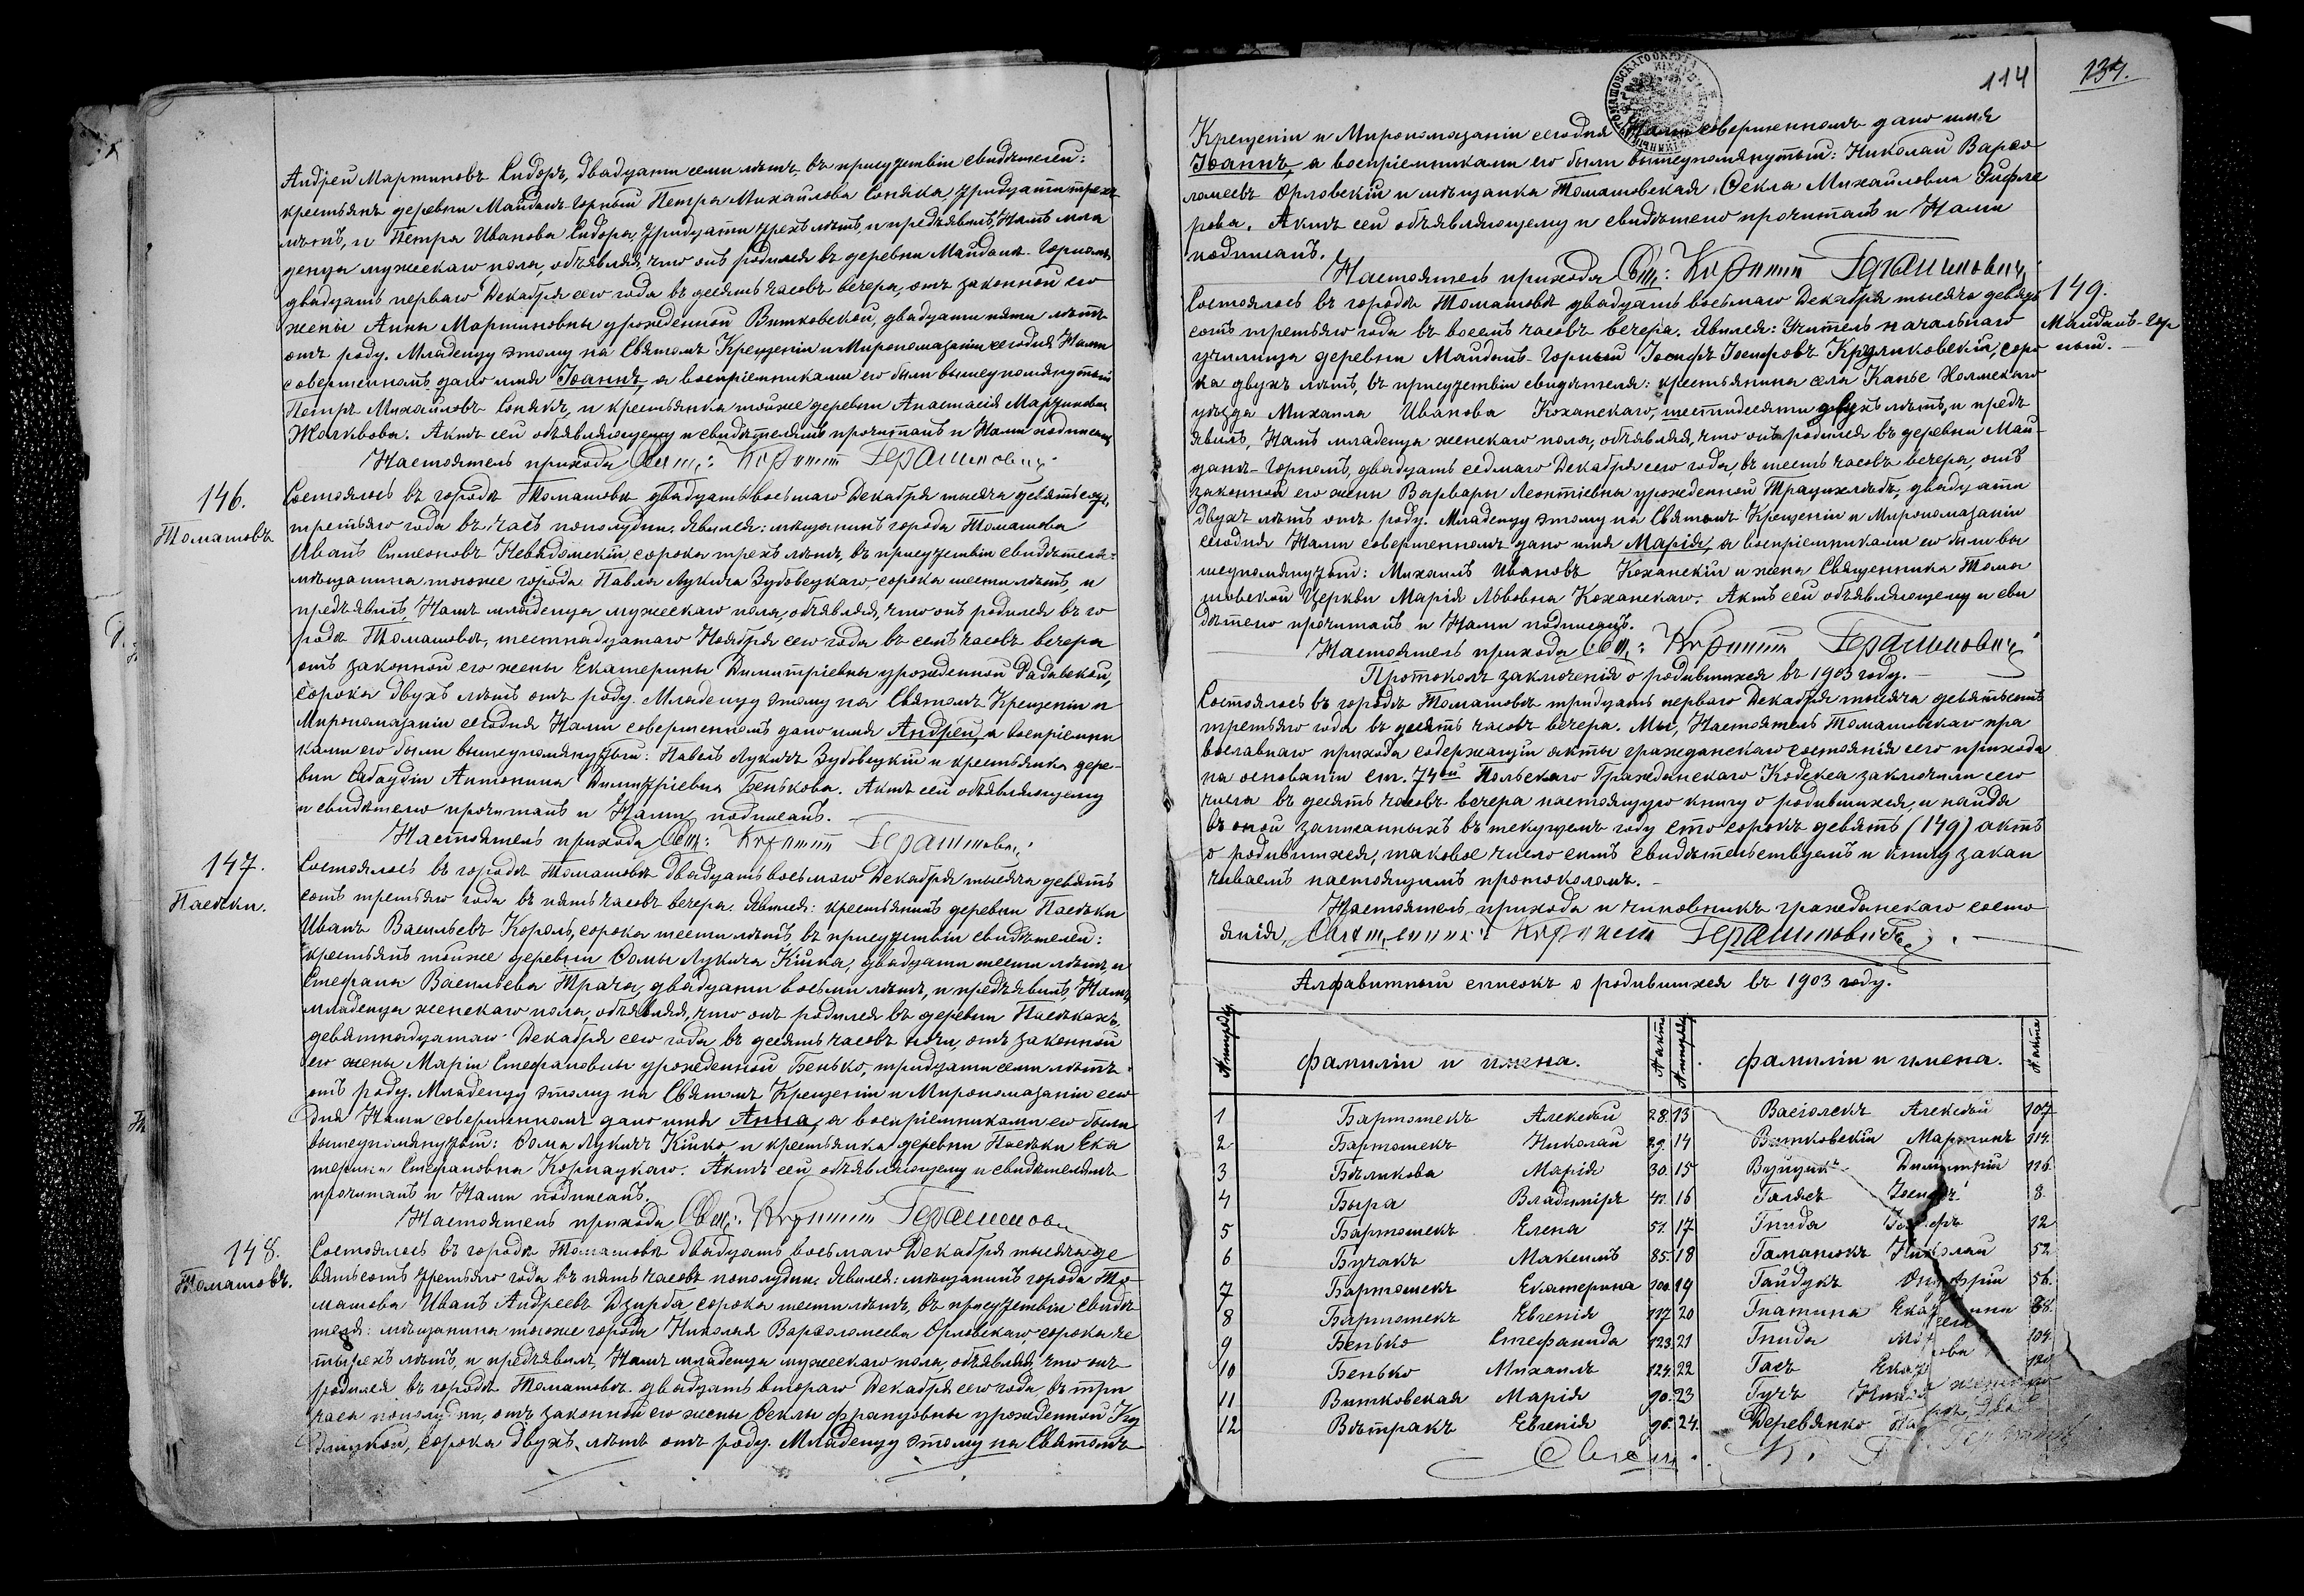 Андрей Мартиновъ Сидоръ, двадцати семи лѣтъ, въ присутствіи свидѣтелей:
крестьянъ деревни Майданъ-Горный Петра Михайлова Соняка, тридцати трехъ
лѣтъ, и Петра Иванова Сидора, тридцати трехъ лѣтъ, и предъявилъ Намъ мла
денца мужескаго пола, объявляя, что онъ родился въ деревни Майданъ-Горномъ
двадцать перваго Декабря сего года въ десять часовъ вечера, отъ законной его
жены Анны Мартиновны урожденной Витковской, двадцати пяти лѣтъ
отъ роду. Младенцу этому на Святомъ Крещеніи и Миропомазаніи сегодня Нами
совершенномъ дано имя Іоаннъ, а воспріемниками его были вышеупомянутый
Петръ Михайловъ Сонякъ, и крестьянка тойже деревни Анастасія Мартиновна
Жолквова. Актъ сей объявляющему и свидѣтелямъ прочитанъ и Нами подписанъ
Настоятель прихода Свящ: Герашиновичъ
146.
Томашовъ
Состоялось въ городѣ Томашовѣ двадцать восьмаго Декабря тысяча девятьсотъ
третьяго года въ часъ пополудни. Явился: мѣщанинъ города Томашова
Иванъ Симеоновъ Невядомскій, сорока трехъ лѣтъ, въ присутствіи свидѣтеля:
мѣщанина тогоже города Павла Лукича Зубовецкаго, сорока шести лѣтъ, и
предъявилъ Намъ младенца мужескаго пола, объявляя, что онъ родился въ го
родѣ Томашовѣ, шестнадцатаго Ноября сего года въ семь часовъ вечера
отъ законной его жены Екатерины Димитріевны урожденной Радавской,
сорока двухъ лѣтъ отъ роду. Младенцу этому на Святомъ Крещеніи и
Миропомазаніи сегодня Нами совершенномъ дано имя Андрей, а воспріемни
ками его были вышеупомянутый: Павелъ Лукичъ Зубовецкій и крестьянка дере-
вни Сабаудіи Антонина Димитріевна Бенькова. Актъ сей объявляющему
и свидѣтелю прочитанъ и Нами подписанъ.
Настоятель прихода Свящ: Герашиновичъ
147.
Пасѣки.
Состоялось въ городѣ Томашовѣ двадцать восьмаго Декабря тысяча девять
сотъ третьяго года въ пять часовъ вечера. Явился: крестьянинъ деревни Пасѣки
Иванъ Васильевъ Король, сорока шести лѣтъ, въ присутствіи свидѣтелей:
крестьянъ тойже деревни Ѳомы Лукича Кішка, двадцати шести лѣтъ, и
Стефана Васильева Трача, двадцати восьми лѣтъ, и предъявилъ Намъ
младенца женскаго пола, объявляя, что онъ родился въ деревни Пасѣкахъ,
девятнадцатаго Декабря сего года въ десять часовъ ночи, отъ законной
его жены Маріи Стефановны урожденной Бенько, тридцати семи лѣтъ
отъ роду. Младенцу этому на Святомъ Крещеніи и Миропомазаніи сего
дня Нами совершенномъ дано имя Анна, а воспріемниками его были
вышеупомянутый: Ѳома Лукичъ Кішко, и крестьянка деревни Пасѣки Ека
терина Стефановна Корнацкаго. Актъ сей объявляющему и свидѣтелямъ
прочитанъ и Нами подписанъ.
Настоятель прихода Свящ: Герашинови
148.
Томашовъ.
Состоялось въ городѣ Томашовѣ двадцать восьмаго Декабря тысяча де
вятьсотъ третьяго года въ пять часовъ пополудни. Явился: мѣщанинъ города То-
машова Иванъ Андреевъ Дзирба, сорока шести лѣтъ, въ присутствіи свидѣ
теля: мѣщанина тогоже города Николая Варѳоломеева Орловскаго, сорока че
тырехъ лѣтъ, и предъявилъ Намъ младенца мужескаго пола, объявляя, что онъ
родился въ городѣ Томашовѣ двадцать втораго Декабря сего года, въ три
часа пополудни, отъ законной его жены Ѳеклы Францовны урожденной
сорока двухъ лѣтъ отъ роду. Младенцу этому на Святомъ
114
137.
Крещеніи и Миропомазаніи сегодня Нами совершенномъ дано имя
Іоаннъ, а воспріемниками его были вышеупомянутый: Николай Варѳо
ломеевъ Орловскій и мѣщанка Томашовская Ѳекла Михайловна Зифле
рова. Актъ сей объявляющему и свидѣтелю прочитанъ и Нами
подписанъ.
Настоятель прихода Свящ: Герашиновичъ
149.
Майданъ-Гор
ный.
Состоялось въ городѣ Томашовѣ двадцать восьмаго Декабря тысяча девять
сотъ третьяго года въ восемь часовъ вечера. Явился: Учитель начальнаго
училища деревни Майданъ-Горный Іосифъ Іосифовъ Круликовскій, соро
ка двухъ лѣтъ, въ присутствіи свидѣтеля: крестьянина села Канье Холмскаго
уѣзда Михаила Иванова Коханскаго, шестидесяти двухъ лѣтъ, и предъ
явилъ Намъ младенца женскаго пола, объявляя, что онъ родился въ деревни Май-
данъ-Горномъ, двадцать седмаго Декабря сего года, въ шесть часовъ вечера, отъ
законной его жены Варвары Леонтіевны урожденной Трацихлѣбъ, двадцати
двухъ лѣтъ отъ роду. Младенцу этому на Святомъ Крещеніи и Миропомазаніи
сегодня Нами совершенномъ дано имя Марія, а воспріемниками его были вы
шеупомянутый: Михаилъ Ивановъ Коханскій и жена Священника Тома
шовской Церкви Марія Львовна Коханскаго. Актъ сей объявляющему и сви
дѣтелю прочитанъ и Нами подписанъ.
Настоятель прихода Свящ: Герашиновичъ
Протоколъ заключенія о родившихся въ 1903 году.
Состоялось въ городѣ Томашовѣ тридцать перваго Декабря тысяча девятьсотъ
третьяго года въ десять часовъ вечера. Мы, Настоятель Томашовскаго пра
вославнаго прихода содержащій акты гражданскаго состоянія сего прихода
на основаніи ст. 74ой Польскаго Гражданскаго Кодекса заключили сего
числа въ десять часовъ вечера настоящую книгу о родившихся, и найдя
въ оной записанныхъ въ текущемъ году сто сорокъ девять (149) актъ
о родившихся, таковое число симъ свидѣтельствуемъ и книгу закан
чиваемъ настоящимъ протоколомъ.
Настоятель прихода и чиновникъ гражданскаго состо
янія, Священникъ Герашиновичъ
Алфавитный списокъ о родившихся въ 1903 году.
№ порядк. Фамиліи и имена. № акта № порядк. Фамиліи и имена. № акта
1 Бартошекъ Алексѣй 28. 13 Васіолекъ Алексѣй 107
2 Бартошекъ Николай 29. 14 Витковскій Мартинъ 114.
3 Бѣликова Марія 30. 15 Вуйцикъ Димитрій 116
4 Быра Владиміръ 41. 16 Галясъ Іосифъ 8.
5 Бартошекъ Елена 51. 17 Гнида 12
6 Бучакъ Максимъ 85. 18 Гаманюкъ Николай 52
7 Бартошекъ Екатерина 100. 19 Гайдукъ Онуфрій 56.
8 Бартошекъ Евгенія 117. 20 Гнатина 68.
9 Бенько Стефанида 123. 21 Гнида 104.
10 Бенько Михаилъ 124. 22 Гасъ
11 Витковская Марія 90. 23 Гучъ
12 Вѣтракъ Евгенія 96. 24. Деревянко